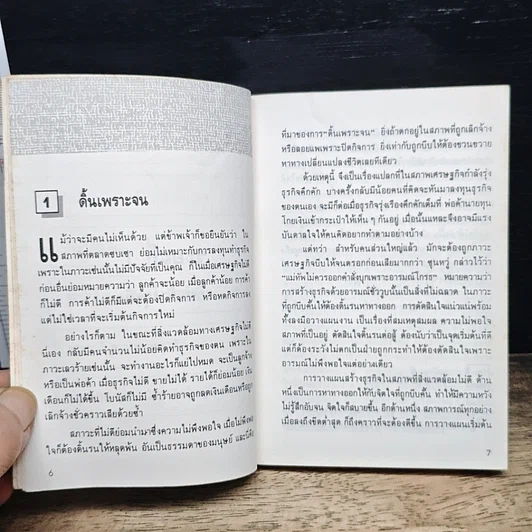 1 ดิ้นเพราะจน
แม้ว่าจะมีคนไม่เห็นด้วย แต่ข้าพเจ้าก็ขอยืนยันว่า ใน
สภาพที่ตลาดซบเซา ย่อมไม่เหมาะกับการลงทุนทำธุรกิจ
เพราะในภาวะเช่นนั้นไม่มีปัจจัยที่เป็นคุณ ก็ในเมื่อเศรษฐกิจไม่ดี
ก่อนอื่นย่อมหมายความว่า ลูกค้าจะน้อย เมื่อลูกค้าน้อย การค้า
ก็ไม่ดี การค้าไม่ดีก็มีแต่จะต้องปิดกิจการ หรือหดกิจการลง
แต่ไม่ใช่เวลาที่จะเริ่มต้นกิจการใหม่
อย่างไรก็ตาม ในขณะที่สิ่งแวดล้อมทางเศรษฐกิจไม่ดี
นี่เอง กลับมีคนจำนวนไม่น้อยคิดทำธุรกิจของตน เพราะใน
ภาวะเลวร้ายเช่นนั้น จะทำงานอะไรก็แย่ไปหมด จะเป็นลูกจ้าง
หรือเป็นพ่อค้า เมื่อธุรกิจไม่ดี ขายไม่ได้ รายได้ก็ย่อมน้อย เงิน
เดือนก็ไม่ได้ขึ้น โบนัสก็ไม่มี ซ้ำร้ายอาจถูกลดเงินเดือนหรือถูก
เลิกจ้างชั่วคราวเสียด้วยซ้ำ
สภาวะที่ไม่ดีย่อมนำมาซึ่งความไม่พึงพอใจ เมื่อไม่พึงพอ
ใจก็ต้องดิ้นรนให้หลุดพ้น อันเป็นธรรมดาของมนุษย์ และนี่คือ
6
ที่มาของการ"ดิ้นเพราะจน" ยิ่งถ้าตกอยู่ในสภาพที่ถูกเลิกจ้าง
หรือลอยแพเพราะปิดกิจการ ยิ่งเท่ากับถูกบีบให้ต้องขวนขวาย
หาทางเปลี่ยนแปลงชีวิตเลยทีเดียว
ด้วยเหตุนี้ จึงเป็นเรื่องแปลกที่ในสภาพเศรษฐกิจกำลังรุ่ง
ธุรกิจคึกคัก บางครั้งกลับมีน้อยคนที่คิดจะหันมาลงทุนธุรกิจ
ของตนเอง จะมีก็ต่อเมื่อธุรกิจรุ่งเรืองคึกคักเต็มที่ พ่อค้านายทุน
โกยเงินเข้ากระเป๋าให้เห็น ๆ กันอยู่ เมื่อนั้นแหละจึงอาจมีแรง
บันดาลใจให้คนคิดอยากทำตามอย่างบ้าง
แต่ทว่า สำหรับคนส่วนใหญ่แล้ว มักจะต้องถูกภาวะ
เศรษฐกิจบีบให้จนตรอกก่อนเสียมากกว่า ซุนหวู่ กล่าวไว้ว่า
"แม่ทัพไม่ควรออกคำสั่งบุกเพราะอารมณ์โกรธ" หมายความว่า
การสร้างธุรกิจด้วยอารมณ์ชั่ววูบนั้นเป็นสิ่งไม่ฉลาด ในภาวะ
ที่ถูกบีบคั้นให้ต้องดิ้นรนหาทางออก การตัดสินใจแน่วแน่พร้อม
ทั้งลงมือวางแผนงาน เป็นเรื่องที่สมเหตุสมผล ความไม่พอใจ
สภาพที่เป็นอยู่ ตัดสินใจดิ้นรนต่อสู้ ต้องนับว่าเป็นจุดเริ่มต้นที่ดี
แต่ก็ต้องระวังไม่ตกเป็นฝ่ายถูกกระทำให้ต้องตัดสินใจเพราะ
อารมณ์ไม่พึงพอใจแต่อย่างเดียว
การวางแผนสร้างธุรกิจในสภาพที่สิ่งแวดล้อมไม่ดี ด้าน
หนึ่งเป็นการหาทางออกให้กับจิตใจที่ถูกบีบคั้น ทำให้มีความหวัง
ไม่รู้สึกอับจน จิตใจก็สบายขึ้น อีกด้านหนึ่ง สภาพการณ์ทุกอย่าง
เมื่อลงถึงขีดต่ำสุด ก็ถึงคราวที่จะต้องดีขึ้น การวางแผนเริ่มต้น
7